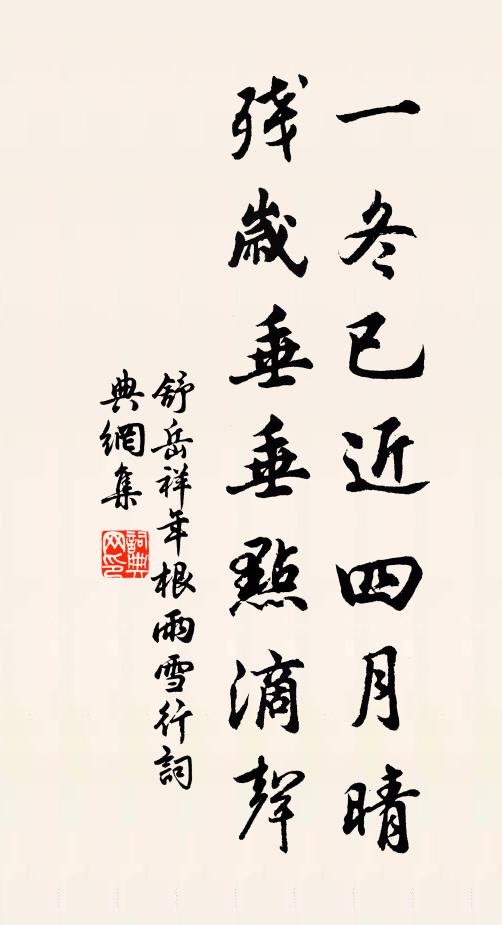 一冬已近四月晴
残歲垂垂點滴聲
舒岳祥年根雨雪行詞
典網集
詞典网印